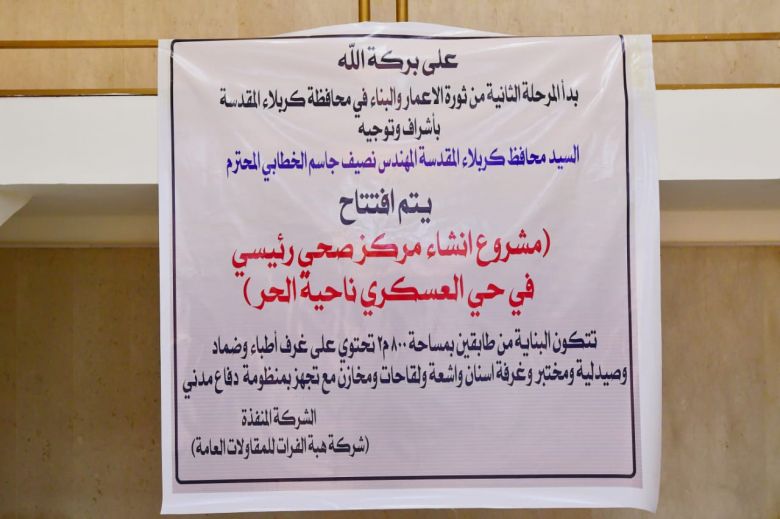 على بركة الله
بدأ المرحلة الثانية من ثورة الاعمار والبناء في محافظة كربلاء المقدسة
بأشراف وتوجيه
السيد محافظ كربلاء المقدسة المهندس نصيف جاسم الخطابي المحترم
يتم افتتاح
(مشروع انشاء مركز صحي رئيسي
في حي العسكري ناحية الحر)
تتكون البناية من طابقين بمساحة ٨٠٠ م٢ تحتوي على غرف أطباء وضماد
وصيدلية ومختبر وغرفة اسنان واشعة ولقاحات ومخازن مع تجهز بمنظومة دفاع مدني
الشركة المنفذة
(شركة هبة الفرات للمقاولات العامة)